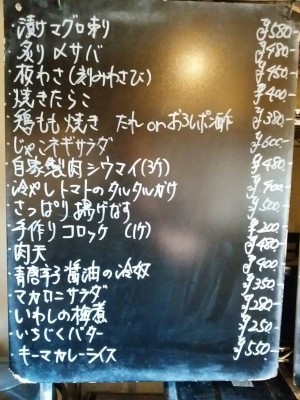 ・漬けマグロ刺し ¥580-
・炙り〆サバ ¥480-
・板わさ(刻みわさび) ¥450-
・焼きたらこ ¥400-
・鶏もも焼き たれorおろしポン酢 ¥380-
・じゃこネギサラダ ¥600-
・自家製肉シウマイ(3ケ) ¥480-
・冷やしトマトのタルタルがけ ¥400-
・さっぱり揚げなす ¥500-
・手作りコロッケ (1ケ) ¥200-
・肉天 ¥480-
・青唐辛子醤油の冷奴 ¥400-
・マカロニサラダ ¥350-
・いわしの梅煮 ¥280-
・いちじくバター ¥250-
・キーマカレーライス ¥550-